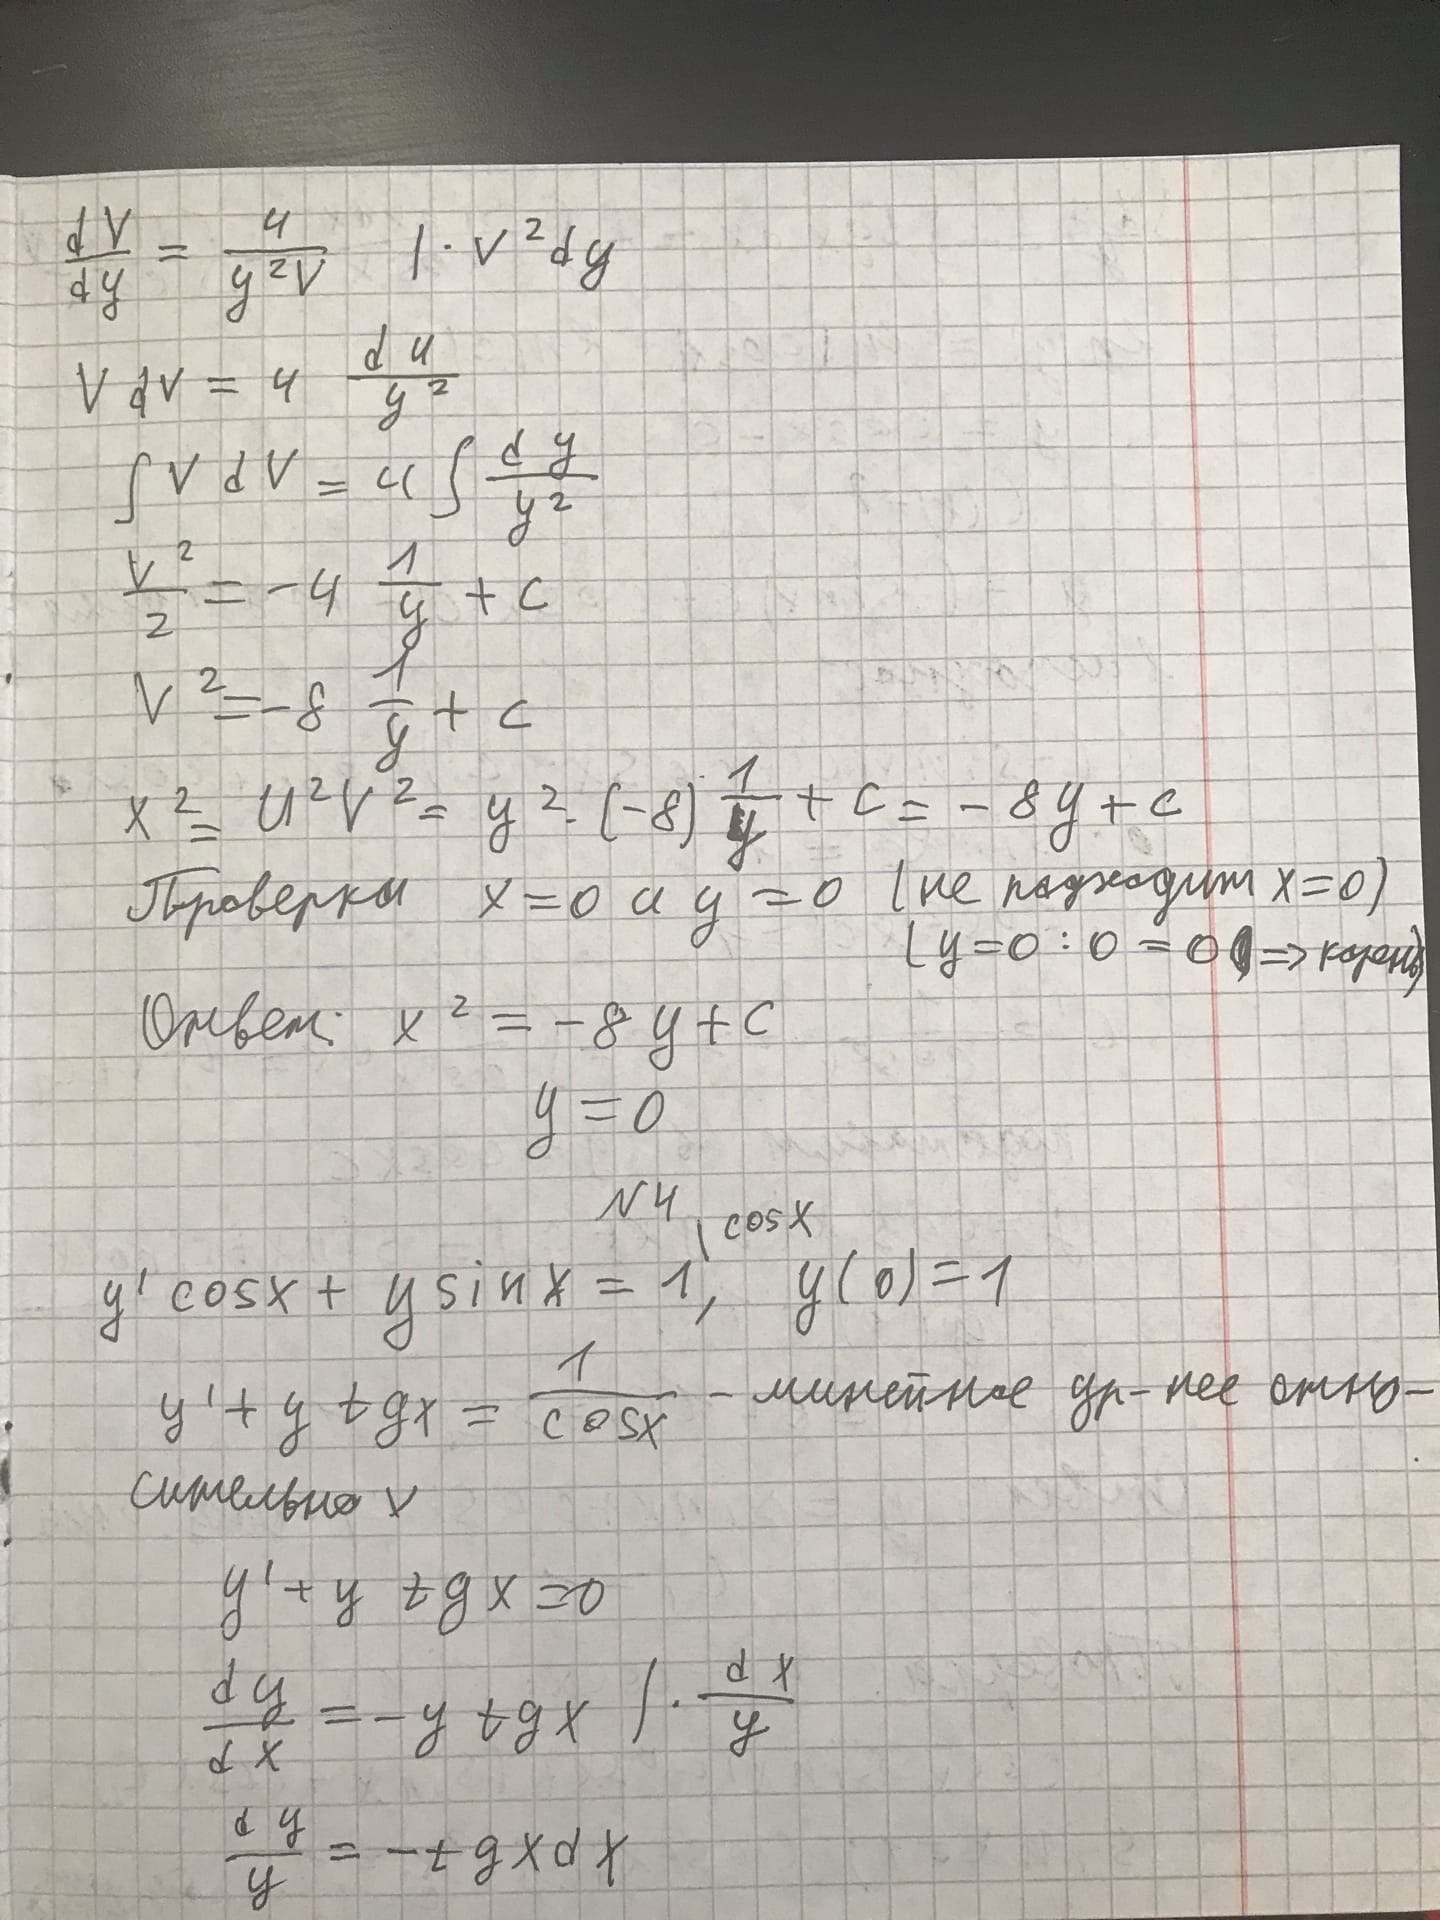 dV/dy = 4/(y²V) | · V²dy
V dV = 4 dy/y²
∫ V dV = 4 ∫ dy/y²
V²/2 = -4 1/y + C
V² = -8 1/y + C
x² = U²V² = y² · (-8) 1/y + C = -8y + C
Проверка x=0 и y=0 (не подходит x=0)
(y=0 : 0=0 => корень)
Ответ: x² = -8y + C
y=0
N4
| cosx
y' cosx + y sinx = 1, y(0)=1
y' + y tgx = 1/cosx - линейное ур-нее отно-
сительно y
y' + y tgx = 0
dy/dx = -y tgx | · dx/y
dy/y = -tgxdx